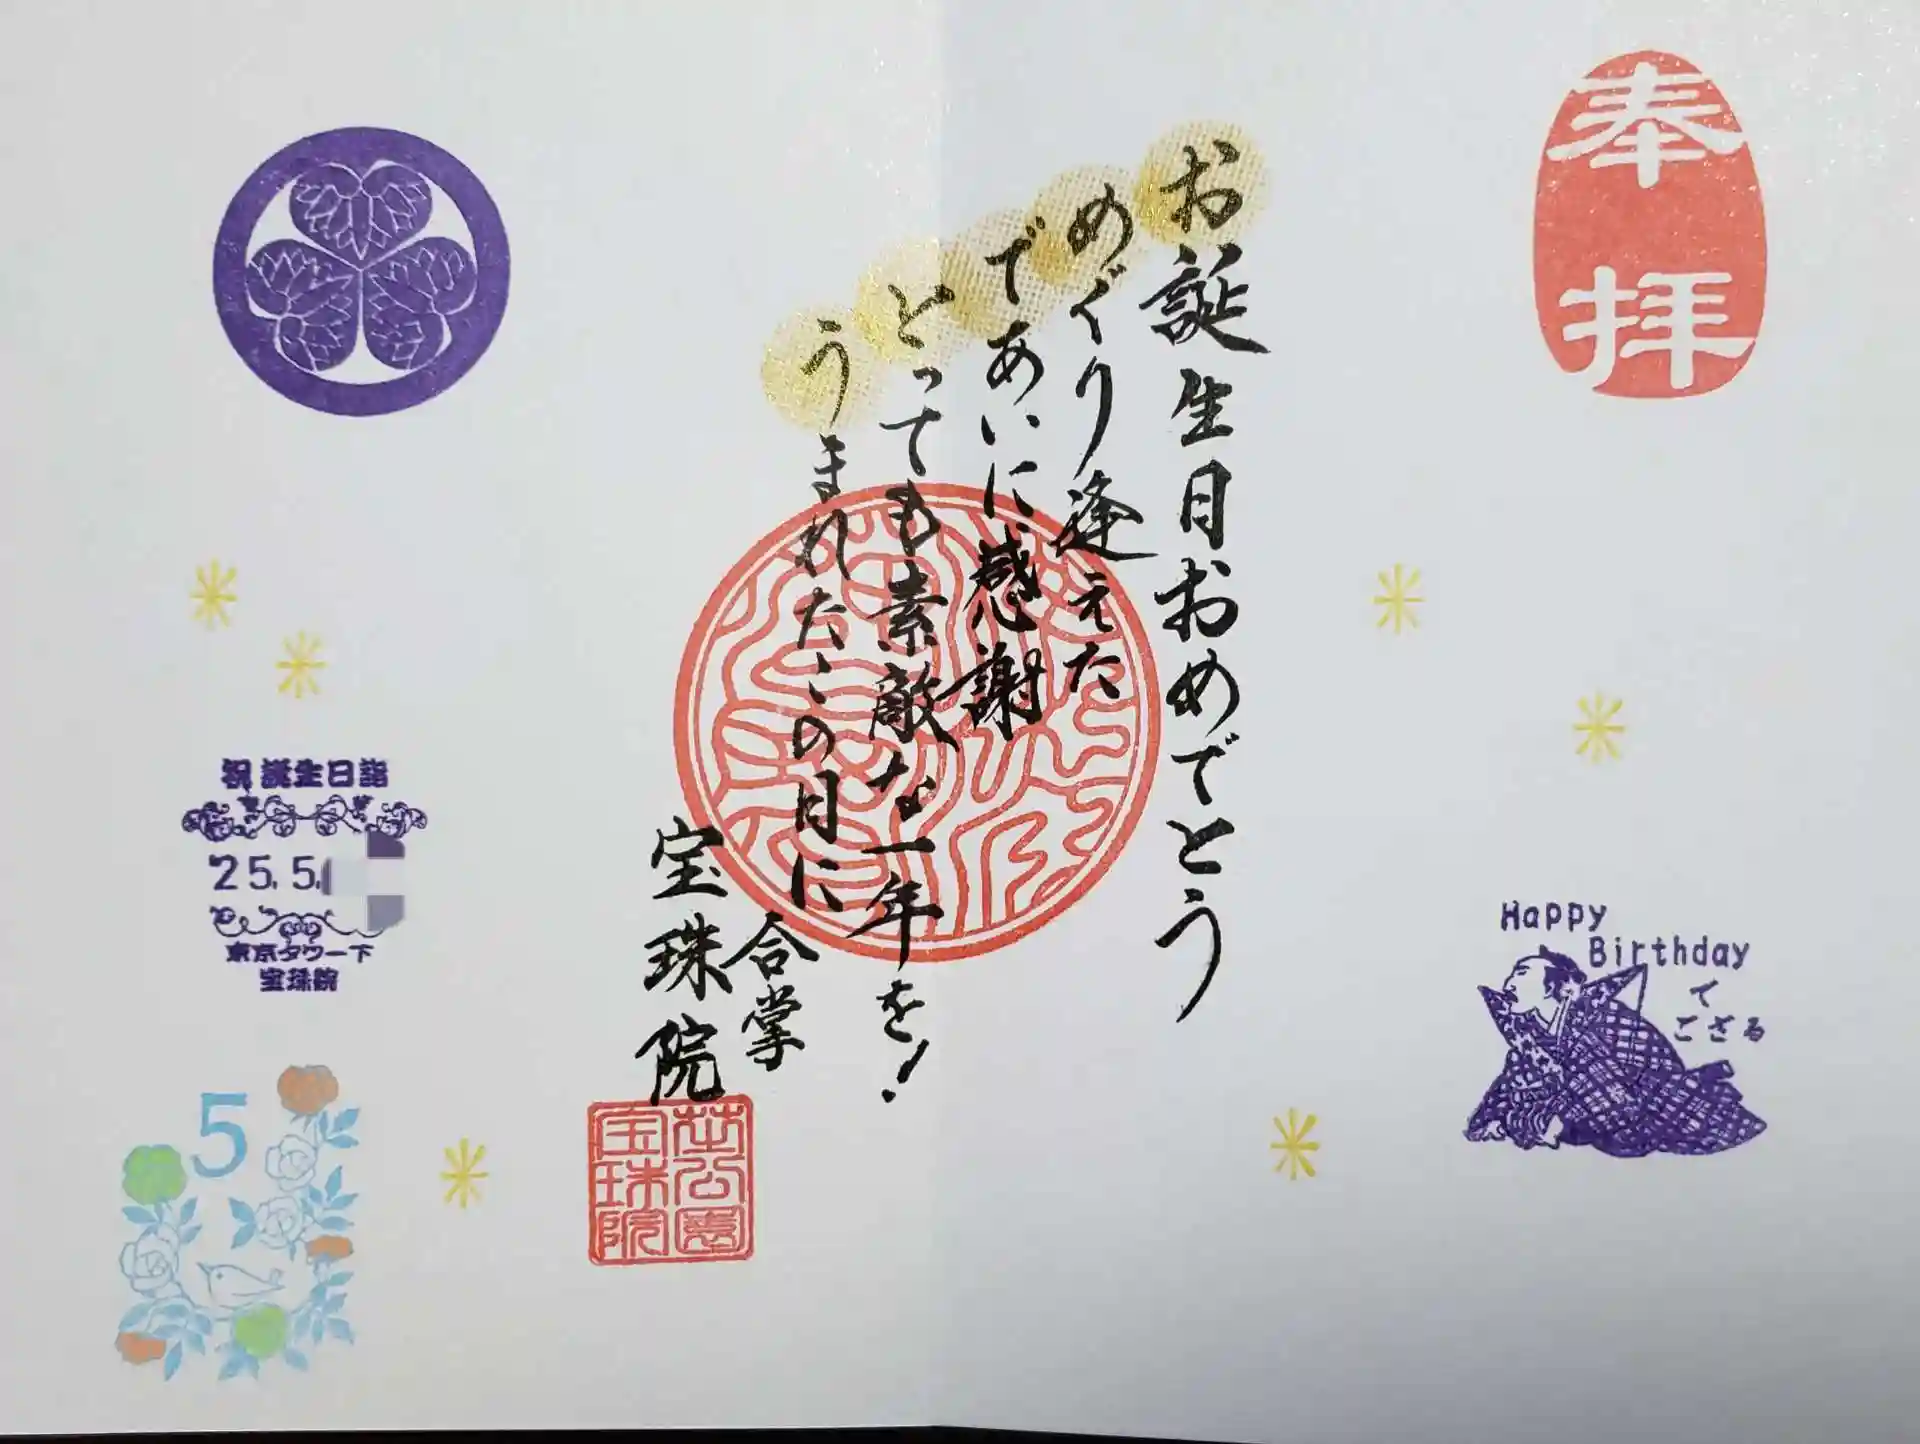 奉拝
お誕生日おめでとう
めぐり逢えた
であいに感謝
とっても素敵な一年を!
うまれたこの日に
合掌
宝珠院
芝公園
宝珠院
Happy
Birthday
で
ござる
祝 誕生日詣
'25.5.
東京タワー下
宝珠院
5